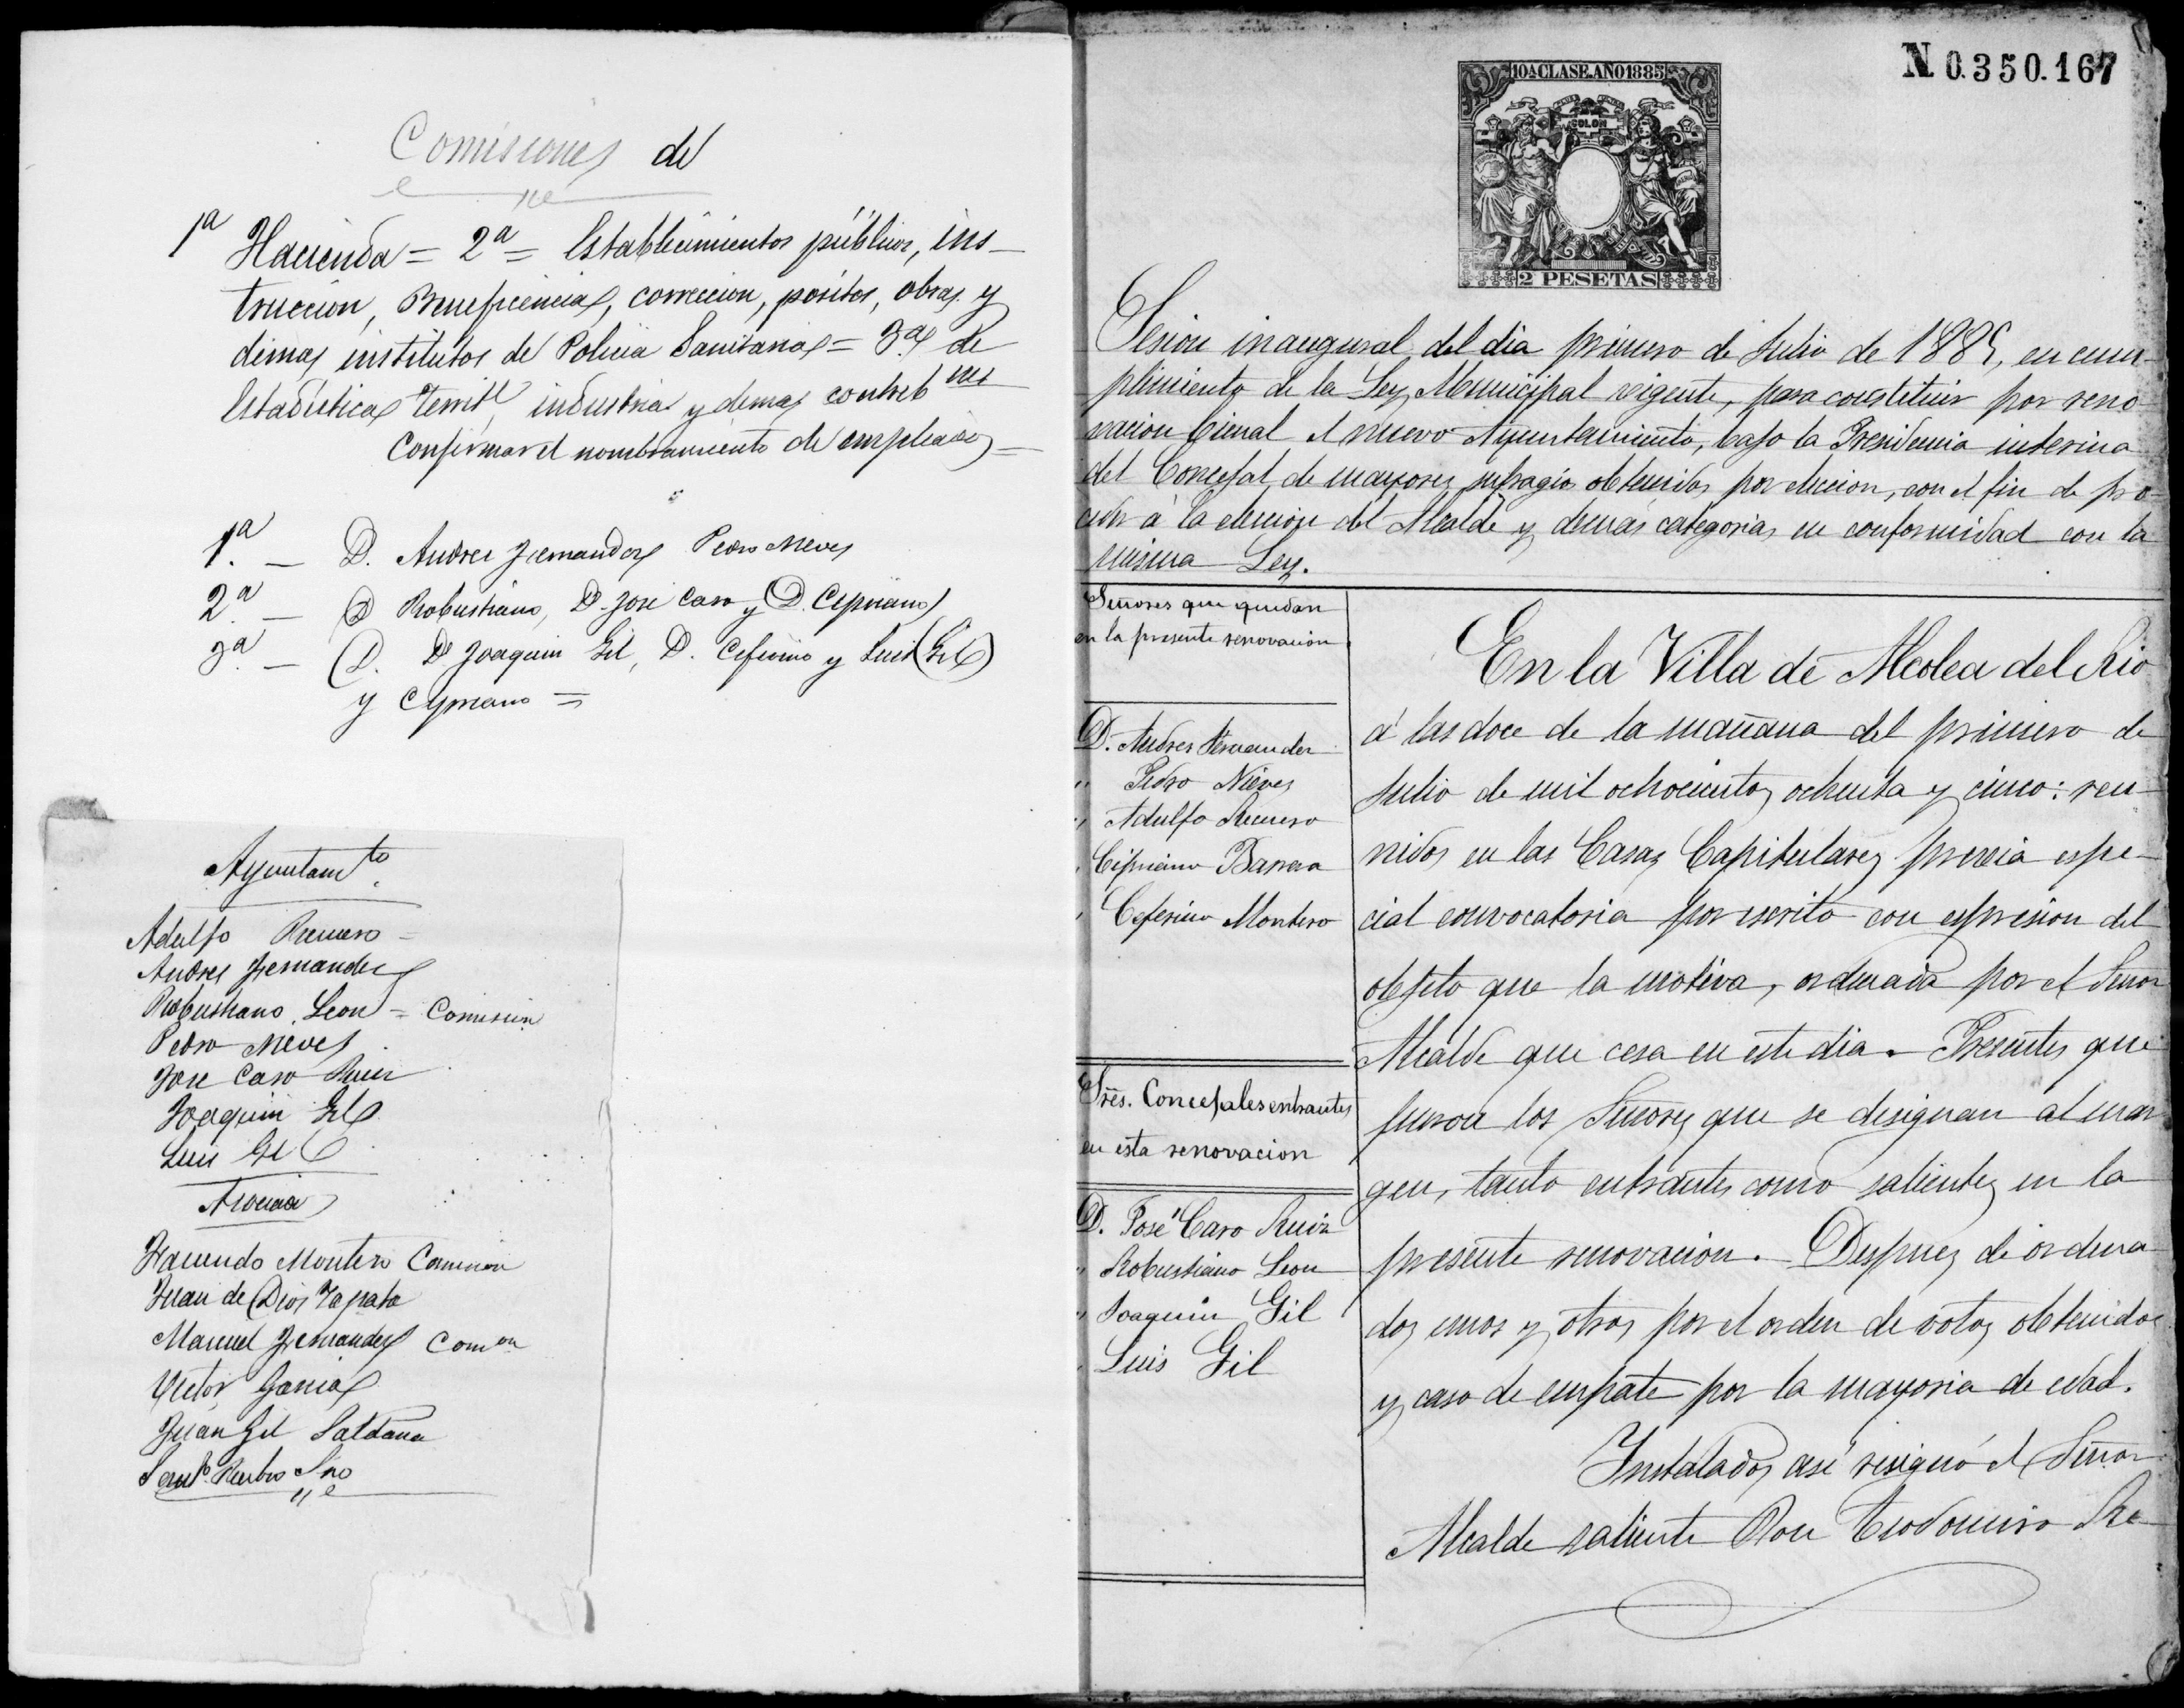 Comisiones de
1ª Hacienda = 2ª = Establecimientos públicos, ins-
truccion, Beneficencia, correccion, positos, obras y
demas institutos de Policia Sanitaria = 3ª de
Estadistica Territl industria y demas contrib nes
Confirmar el nombramiento de empleados =
1ª. — D. Andres Fernandez Pedro Nieves
2ª. — D Robustiano, D. José Caro y D. Cipriano
3ª. — D. Dn Joaquin Gil, D. Ceferino y Luis (Gil)
y Cipriano =
Ayuntamto.
Adolfo Romero =
Andres Fernandez
Robustiano Leon = Comision
Pedro Nieves
Jose Caro Ruiz
Joaquin Gil
Luis Gil
Asociados
Facundo Montero Comision
Juan de Dios Zapata
Manuel Fernandez Comon
Victor Garcia
Juan Gil Saldaña
Rubio Srio
N. 0.350.167
10ª CLASE. AÑO 1885
COLON
2 PESETAS
Sesion inaugural del dia primero de Julio de 1885, en cum-
plimiento de la Ley Municipal vigente, para constituir por reno-
vacion bienal el nuevo Ayuntamiento, bajo la Presidencia interina
del Concejal de mayores sufragios obtenidos por eleccion, con el fin de pro-
ceder á la eleccion del Alcalde y demás categorias en conformidad con la
misma Ley.
Señores que quedan
en la presente renovacion
D. Andres Fernandez
" Pedro Nieves
" Adolfo Romero
" Cipriano Barrera
" Ceferino Montero
Sres. Concejales entrantes
en esta renovacion
D. José Caro Ruiz
" Robustiano Leon
" Joaquin Gil
" Luis Gil
En la Villa de Alcolea del Rio
á las doce de la mañana del primero de
Julio de mil ochocientos ochenta y cinco: reu-
nidos en las Casas Capitulares previa espe-
cial convocatoria por escrito con espresion del
objeto que la motiva, ordenada por el Señor
Alcalde que cesa en este dia. Presentes que
fueron los Señores que se designan al mar
gen, tanto entrantes como salientes en la
presente renovacion. Despues de ordena
dos unos y otros por el orden de votos obtenidos
y caso de empate por la mayoria de edad.
Instalados asi resignó el Señor
Alcalde saliente Don Teodomiro Ro-